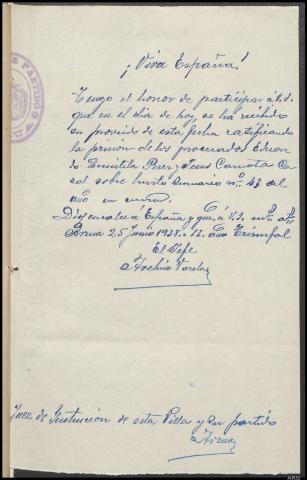 ¡Viva España!
Tengo el honor de participar á V.S.
que en el dia de hoy, se ha recibido
su proveido de esta fecha ratificando
la prision de los procesados Eduar
do Perez y Jesus
sobre hurto Sumario nº 43 del
año en curso.
Dios salve á España y guè á V.S. mˢ aˢ
Arzua 25 Junio 1938 = II año Triunfal
El Jefe
Varela
Juez de Instrucción de esta Villa y su partido
Arzua